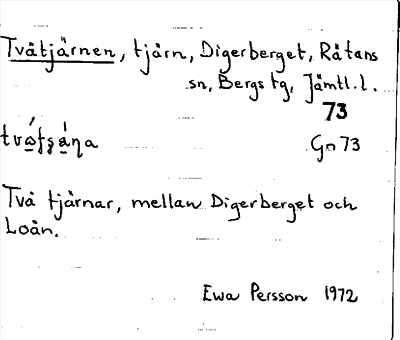 Tvåtjärnen, tjärn, Digerberget, Råtans
sn, Bergs tg, Jämtl. l.
73
Gn 73
Två tjärnar, mellan Digerberget och
Loån.
Ewa Persson 1972